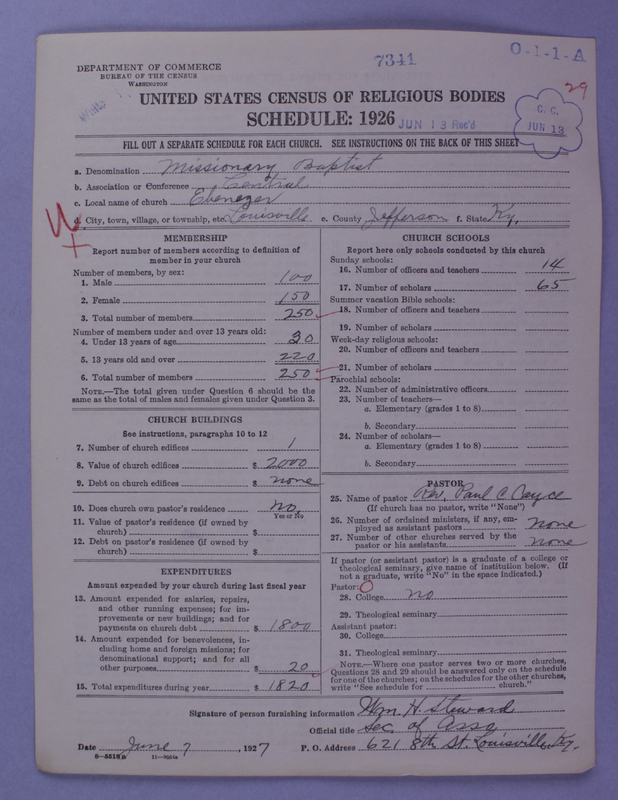 7341
O-1-1-A
DEPARTMENT OF COMMERCE
BUREAU OF THE CENSUS
WASHINGTON
29
UNITED STATES CENSUS OF RELIGIOUS BODIES
SCHEDULE: 1926
JUN 13 Rec'd
C. C.
JUN 13
FILL OUT A SEPARATE SCHEDULE FOR EACH CHURCH. SEE INSTRUCTIONS ON THE BACK OF THIS SHEET
a. Denomination Missionary Baptist
b. Association or Conference Central
c. Local name of church Ebenezer
d. City, town, village, or township, etc. Louisville e. County Jefferson f. State Ky.
MEMBERSHIP
Report number of members according to definition of
member in your church
Number of members, by sex:
1. Male 100
2. Female 150
3. Total number of members 250
Number of members under and over 13 years old:
4. Under 13 years of age 30
5. 13 years old and over 220
6. Total number of members 250
NOTE.—The total given under Question 6 should be the
same as the total of males and females given under Question 3.
CHURCH BUILDINGS
See instructions, paragraphs 10 to 12
7. Number of church edifices 1
8. Value of church edifices $ 2000
9. Debt on church edifices $ none
10. Does church own pastor's residence No.
Yes or No
11. Value of pastor's residence (if owned by
church) $
12. Debt on pastor's residence (if owned by
church) $
EXPENDITURES
Amount expended by your church during last fiscal year
13. Amount expended for salaries, repairs,
and other running expenses; for im-
provements or new buildings; and for
payments on church debt $ 1800
14. Amount expended for benevolences, in-
cluding home and foreign missions; for
denominational support; and for all
other purposes $ 20
15. Total expenditures during year $ 1820
CHURCH SCHOOLS
Report here only schools conducted by this church
Sunday schools:
16. Number of officers and teachers 14
17. Number of scholars 65
Summer vacation Bible schools:
18. Number of officers and teachers
19. Number of scholars
Week-day religious schools:
20. Number of officers and teachers
21. Number of scholars
Parochial schools:
22. Number of administrative officers
23. Number of teachers—
a. Elementary (grades 1 to 8)
b. Secondary
24. Number of scholars—
a. Elementary (grades 1 to 8)
b. Secondary
PASTOR
25. Name of pastor Rev. Paul C Cayce
(If church has no pastor, write "None")
26. Number of ordained ministers, if any, em-
ployed as assistant pastors none
27. Number of other churches served by the
pastor or his assistants none
If pastor (or assistant pastor) is a graduate of a college or
theological seminary, give name of institution below. (If
not a graduate, write "No" in the space indicated.)
Pastor:
28. College no
29. Theological seminary
Assistant pastor:
30. College
31. Theological seminary
NOTE.—Where one pastor serves two or more churches,
Questions 28 and 29 should be answered only on the schedule
for one of the churches; on the schedules for the other churches,
write "See schedule for church."
Signature of person furnishing information Wm H Steward
Official title Sec. of Assa
Date June 7, 1927 P. O. Address 621 8th St. Louisville, Ky.